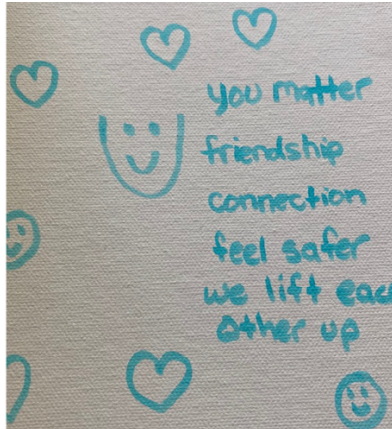 you matter
friendship
connection
feel safer
we lift each
other up